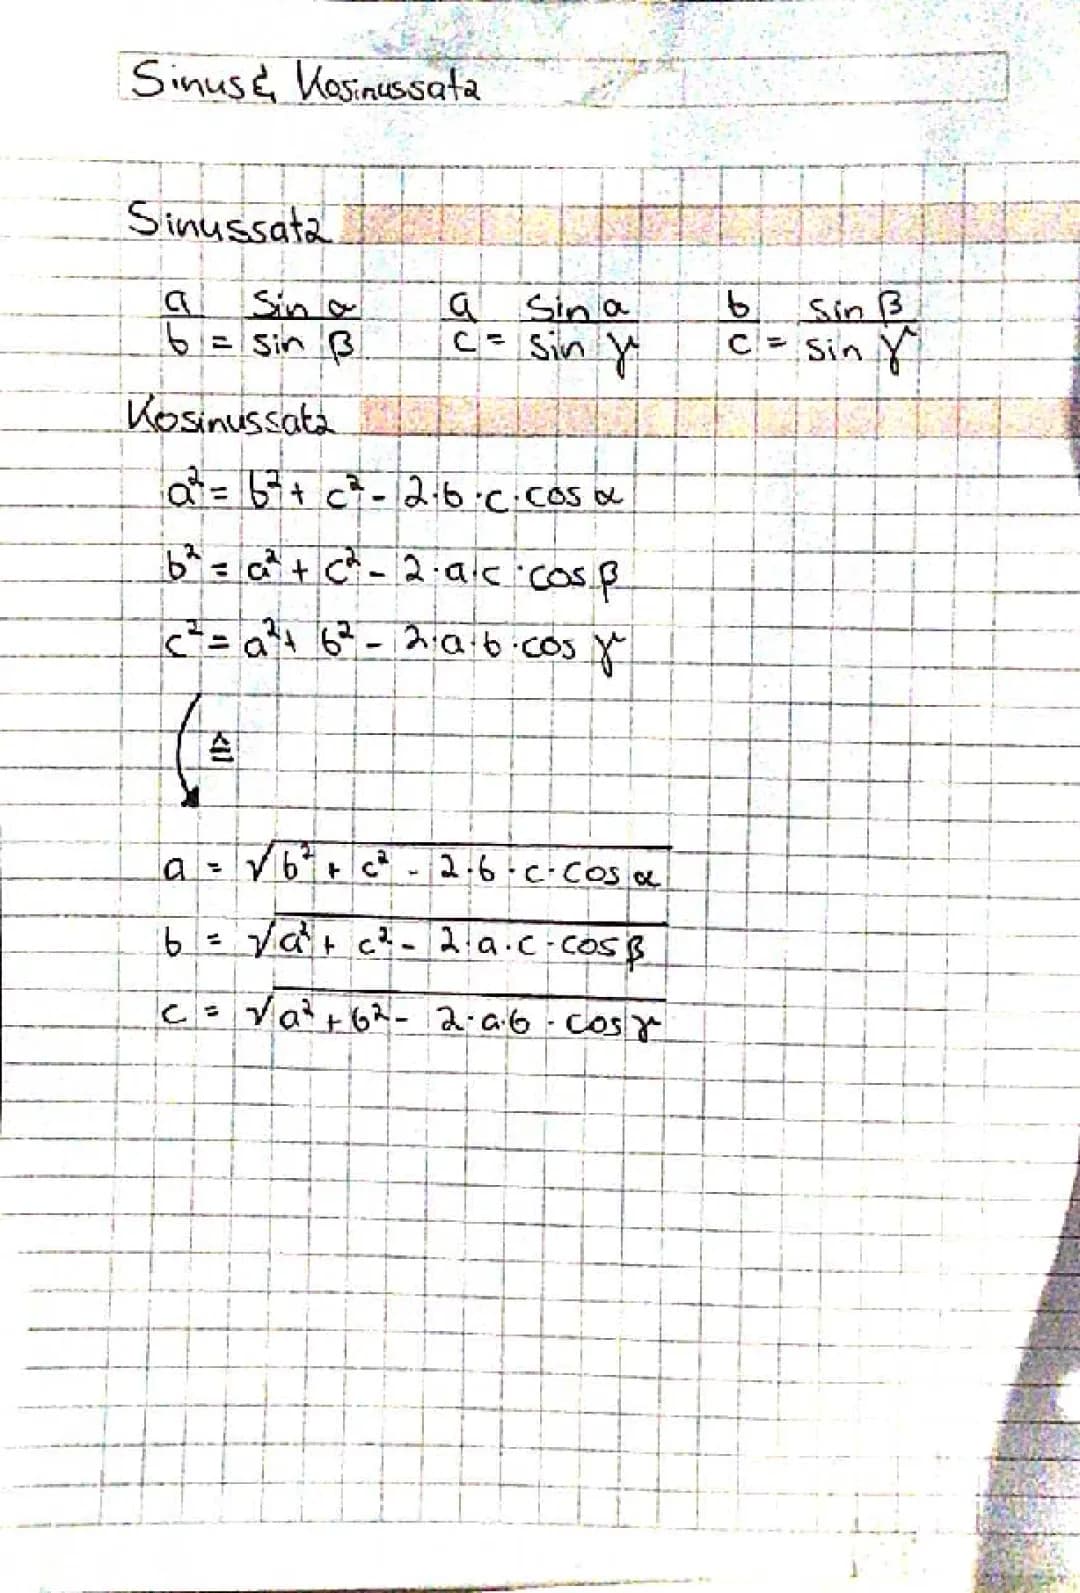 Sinus & Kosinussatz
Sinussatz
a/b = sin α/sin β   a/c = sin α/sin γ   b/c = sin β/sin γ
Kosinussatz
a² = b² + c² - 2·b·c·cos α
b² = a² + c² - 2·a·c·cos β
c² = a² + b² - 2·a·b·cos γ
≙
a = √(b² + c² - 2·b·c·cos α)
b = √(a² + c² - 2·a·c·cos β)
c = √(a² + b² - 2·a·b·cos γ)